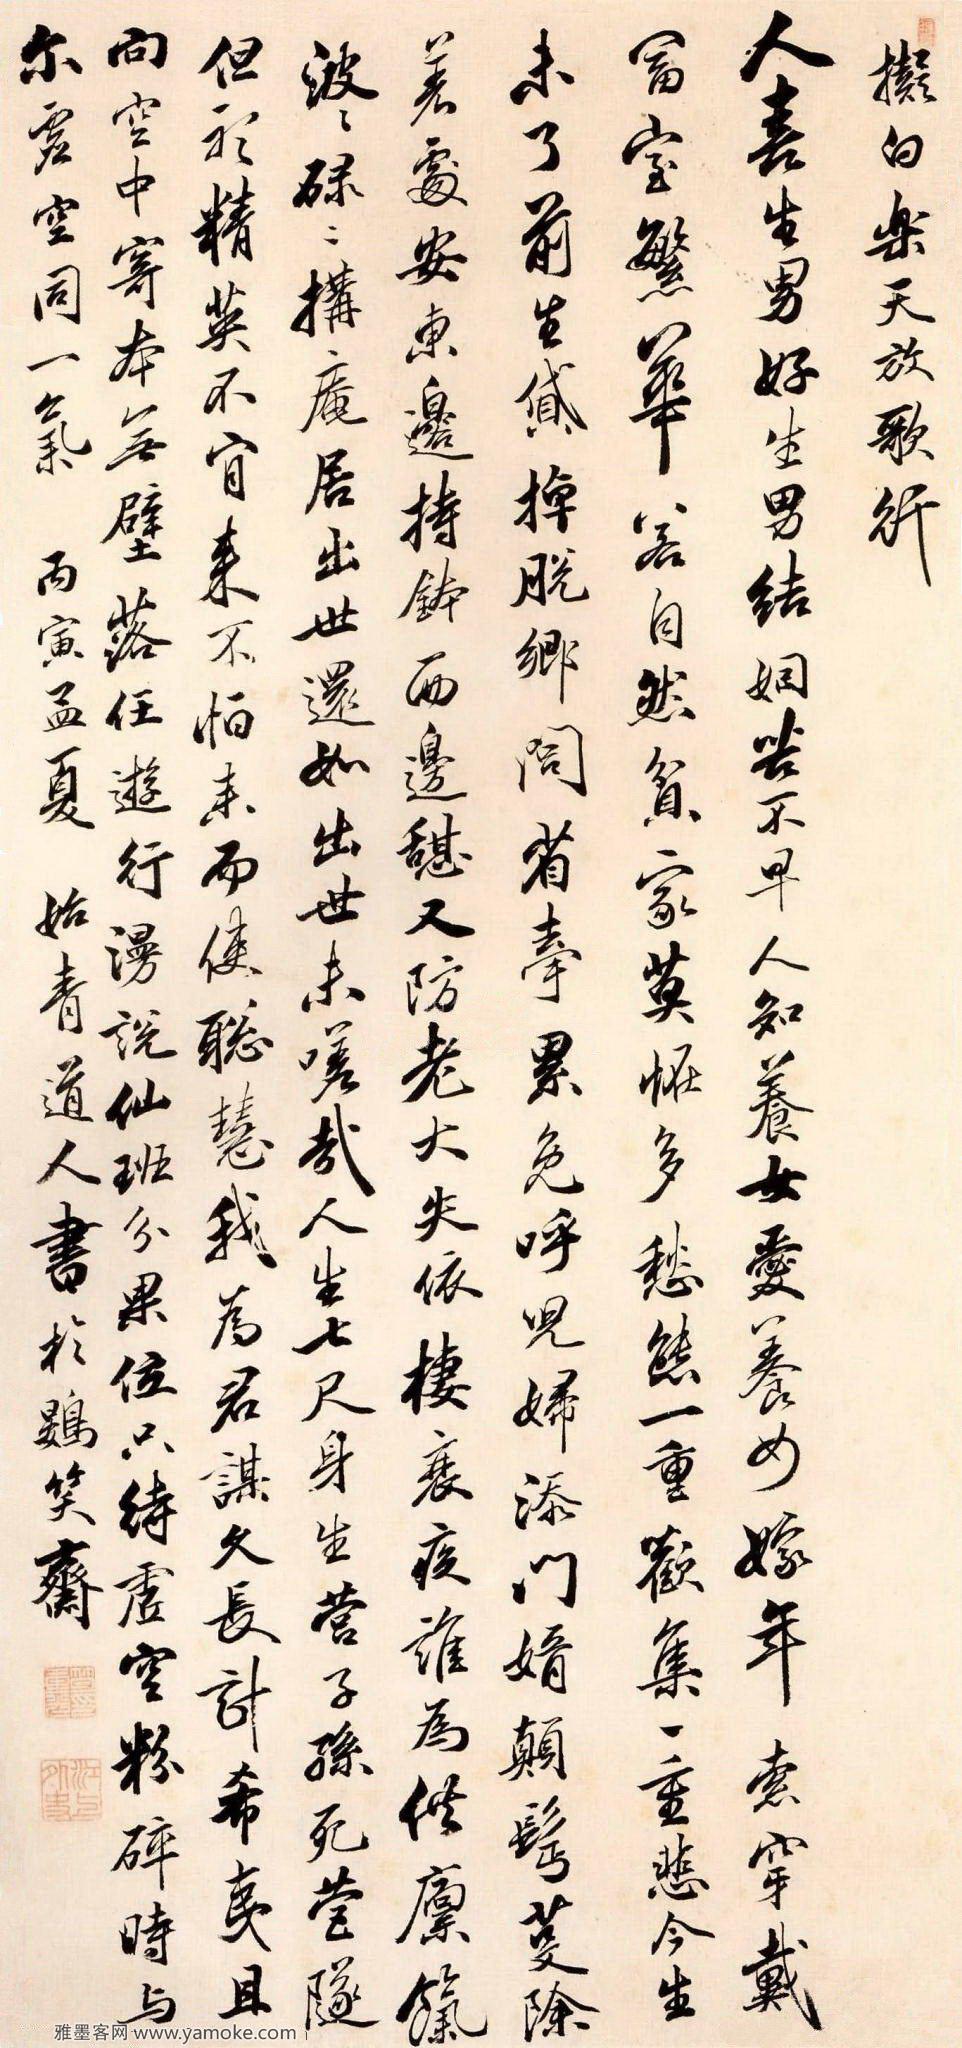 擬白樂天放歌行
人喜生男好生男結姻苦不早人知養女愛養女嫁年索穿戴
富室繁華若自然貧家莫怪多愁態一重歡集一重悲今生
未了前生貸掉脫鄉閭省牽累免呼兒婦添門婿顛髩蔓除
著處安東邊持鉢西邊憩又防老大失依棲衰疾誰為供廩餼
波〻碌〻搆庵居出世還如出世未嗟哉人生七尺身生營子孫死營隧
但祈精英不肯來不怕未而使聰慧我為君謀久長計希夷且
向空中寄本無壁落任遊行漫說仙班分果位只待虛空粉碎時與
尔虛空同一氣 丙寅孟夏 始青道人書於鷃笑齋
雅墨客网 www.yamoke.com